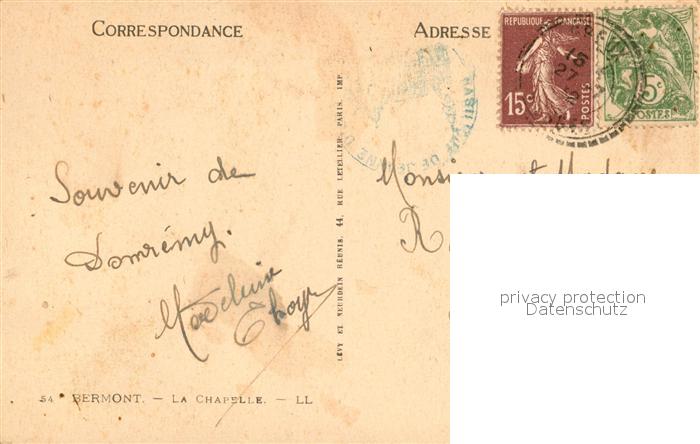 CORRESPONDANCE
ADRESSE
REPUBLIQUE FRANÇAISE
15c
POSTES
5c
POSTES
15
27
DE JEANNE D
Souvenir de
Domrémy.
Monsieur et Madame
R
LÉVY ET NEURDEIN RÉUNIS, 44, RUE LETELLIER, PARIS, IMP.
54 BERMONT. — LA CHAPELLE. — LL
privacy protection
Datenschutz